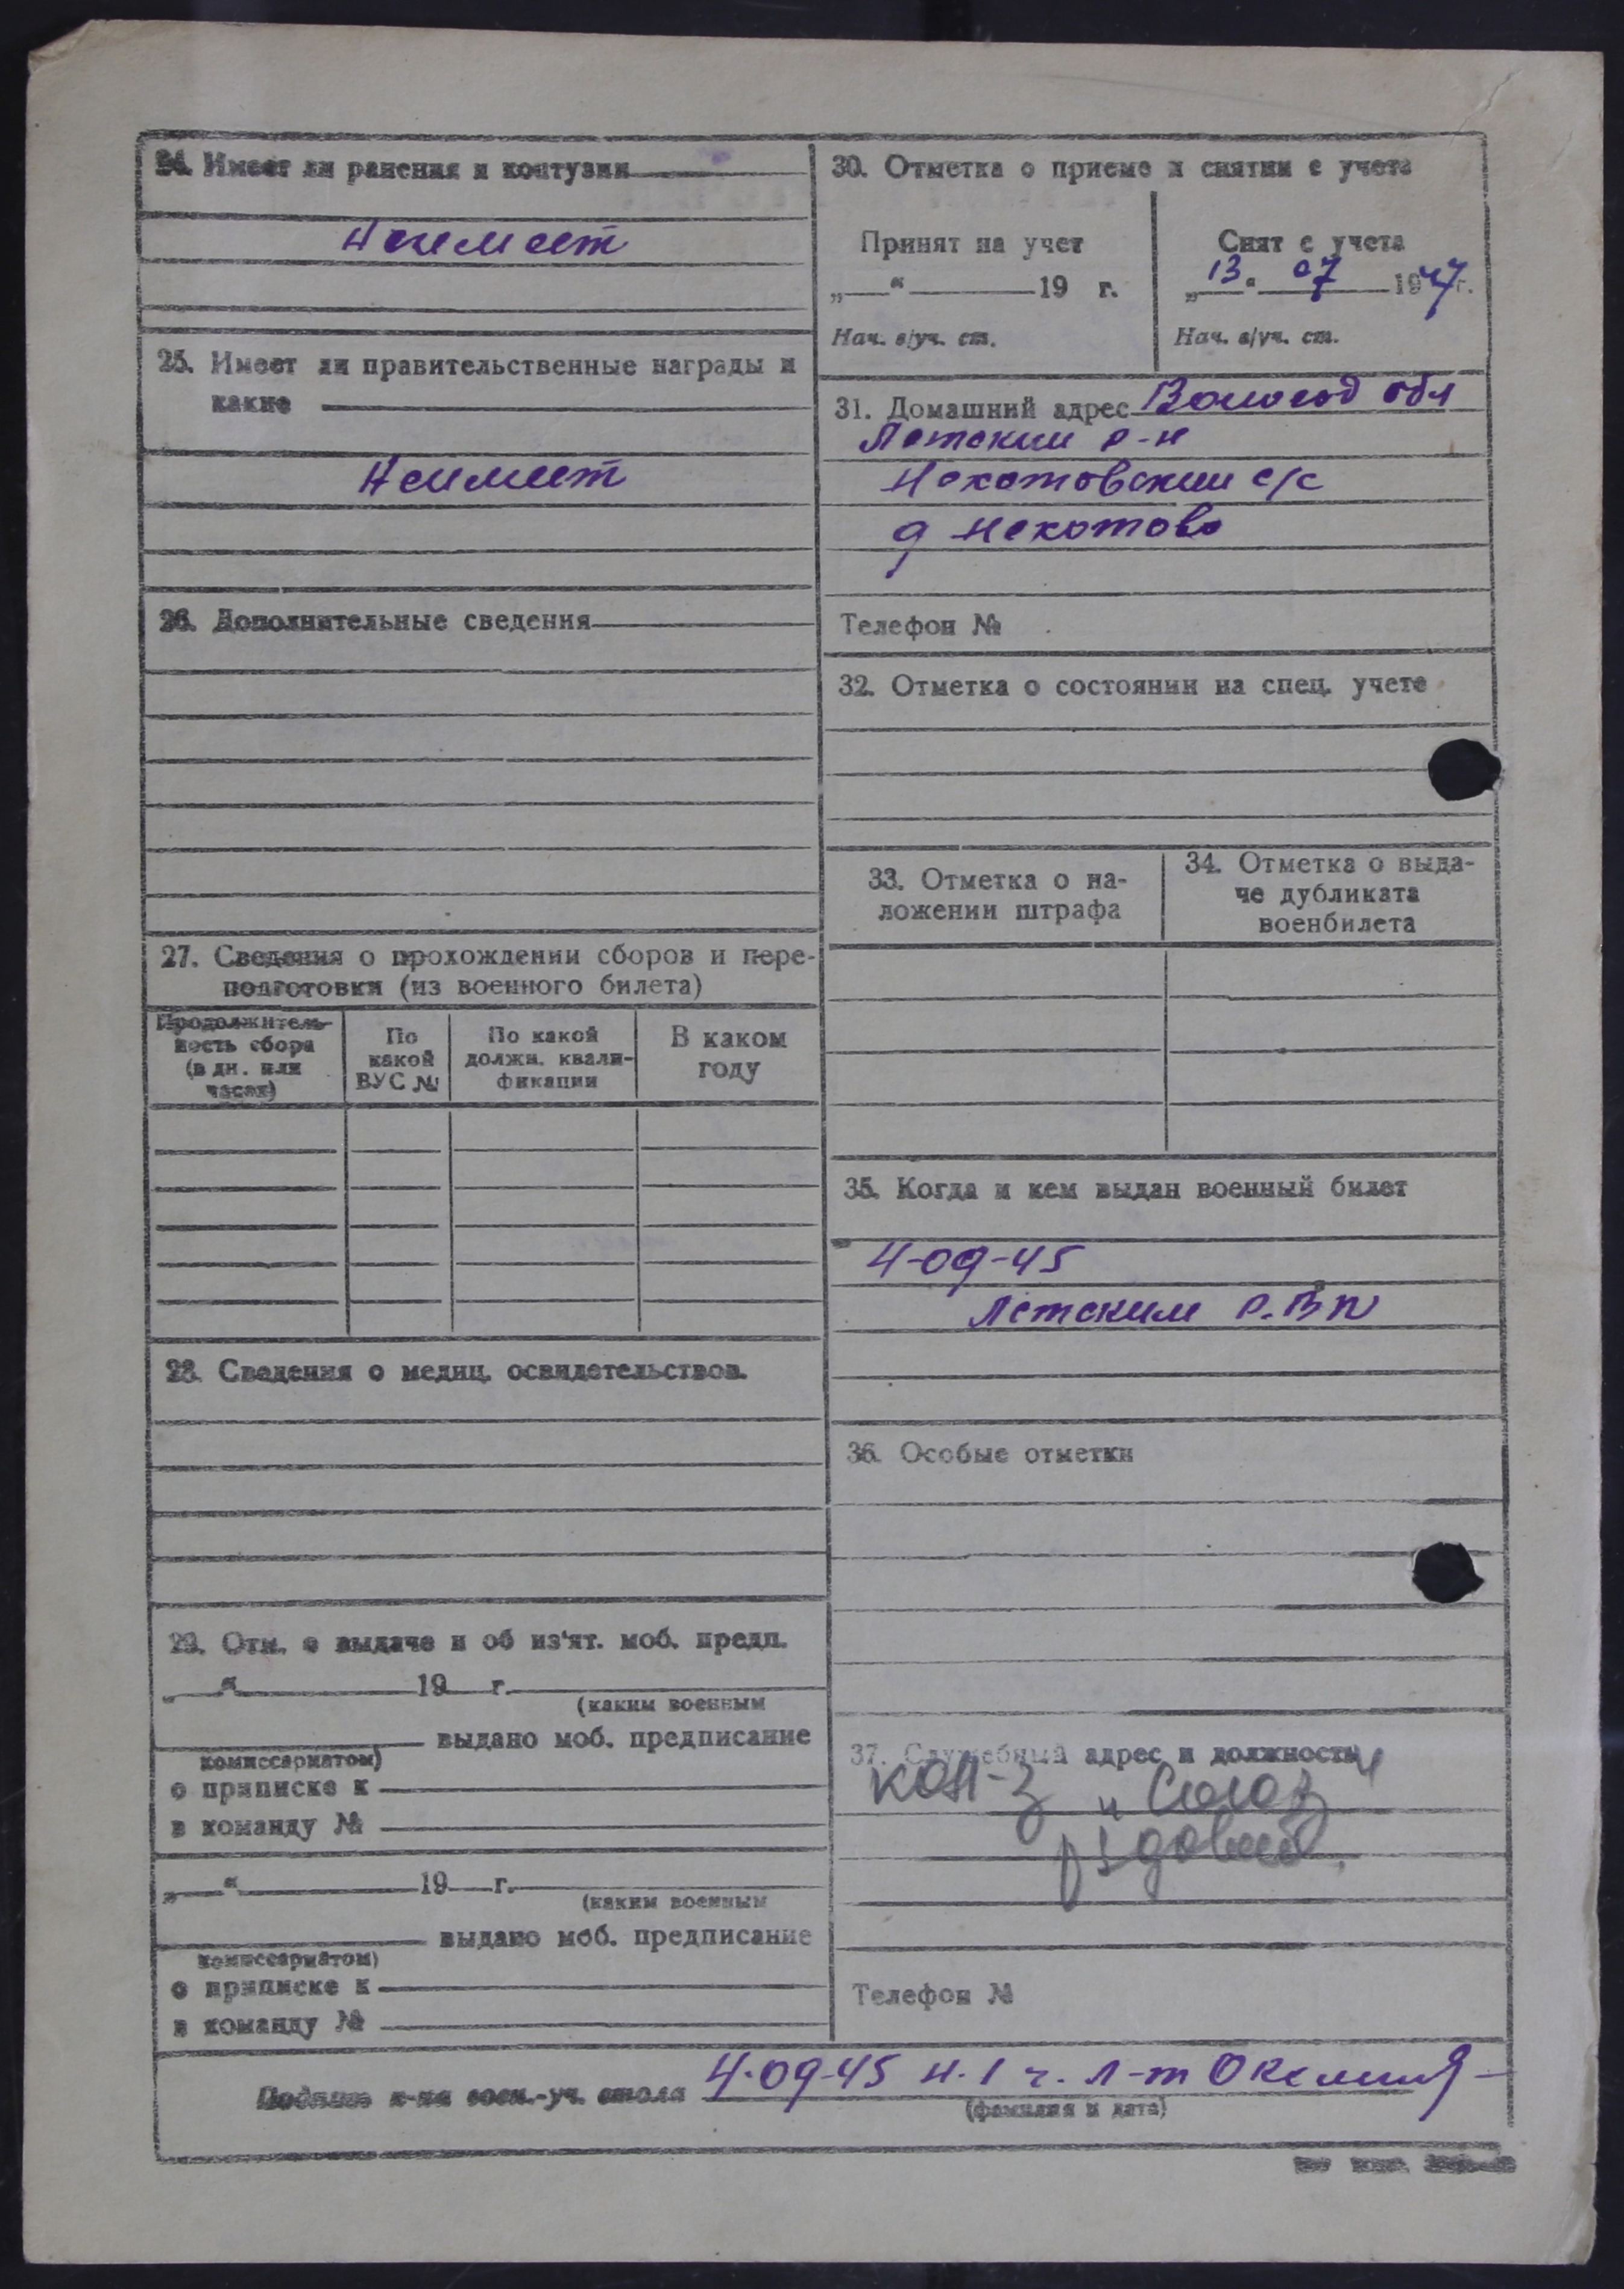 24. Имеет ли ранения и контузии
Неимеет
25. Имеет ли правительственные награды и
какие
Неимеет
26. Дополнительные сведения
27. Сведения о прохождении сборов и пере-
подготовки (из военного билета)
Продолжитель-
ность сбора
(в дн. или
часах)
По
какой
ВУС №
По какой
должн. квали-
фикации
В каком
году
28. Сведения о медиц. освидетельствов.
29. Отм. о выдаче и об из'ят. моб. предп.
„ “ 19 г.
(каким военным
выдано моб. предписание
комиссариатом)
о приписке к
в команду №
„ “ 19 г.
(каким военным
выдано моб. предписание
комиссариатом)
о приписке к
в команду №
30. Отметка о приеме и снятии с учета
Принят на учет
„ “ 19 г.
Нач. в/уч. ст.
Снят с учета
„13“ 07 1947г.
Нач. в/уч. ст.
31. Домашний адрес Вологод обл
Летским р-н
Некотовским с/с
д Некотово
Телефон №
32. Отметка о состоянии на спец. учете
33. Отметка о на-
ложении штрафа
34. Отметка о выда-
че дубликата
военбилета
35. Когда и кем выдан военный билет
4-09-45
Летским
36. Особые отметки
37. Служебный адрес и должность
кол-з „Союз
Телефон №
Подпись н-ка воен.-уч. стола 4-09-45 н. 1 ч. л-т
(фамилия и дата)